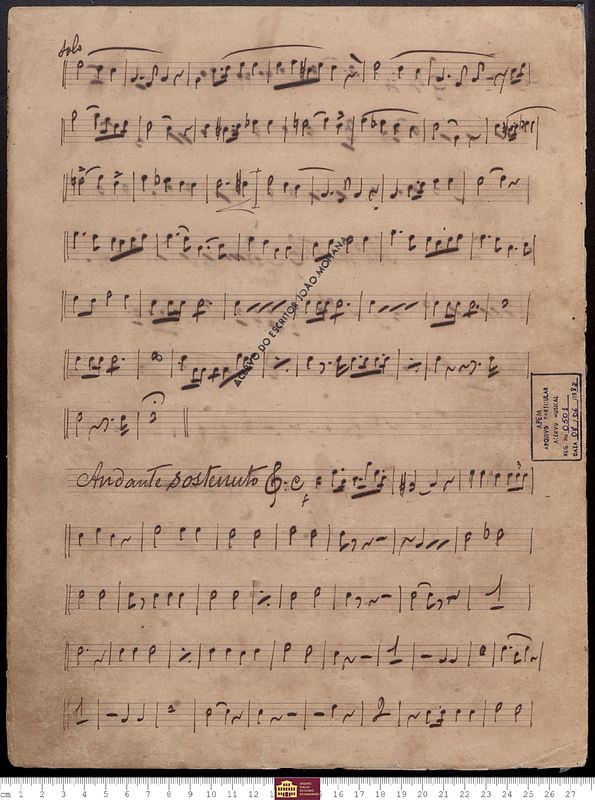 Solo
ACERVO DO ESCRITOR JOÃO MOHANA
APEM
ARQUIVO PARTICULAR
ACERVO MUSICAL
REG. No 0501
DATA 08/06/1982
Andante sostenuto C
f
1
1
1 2
cm 1 2 3 4 5 6 7 8 9 10 11 12 16 17 18 19 20 21 22 23 24 25 26 27